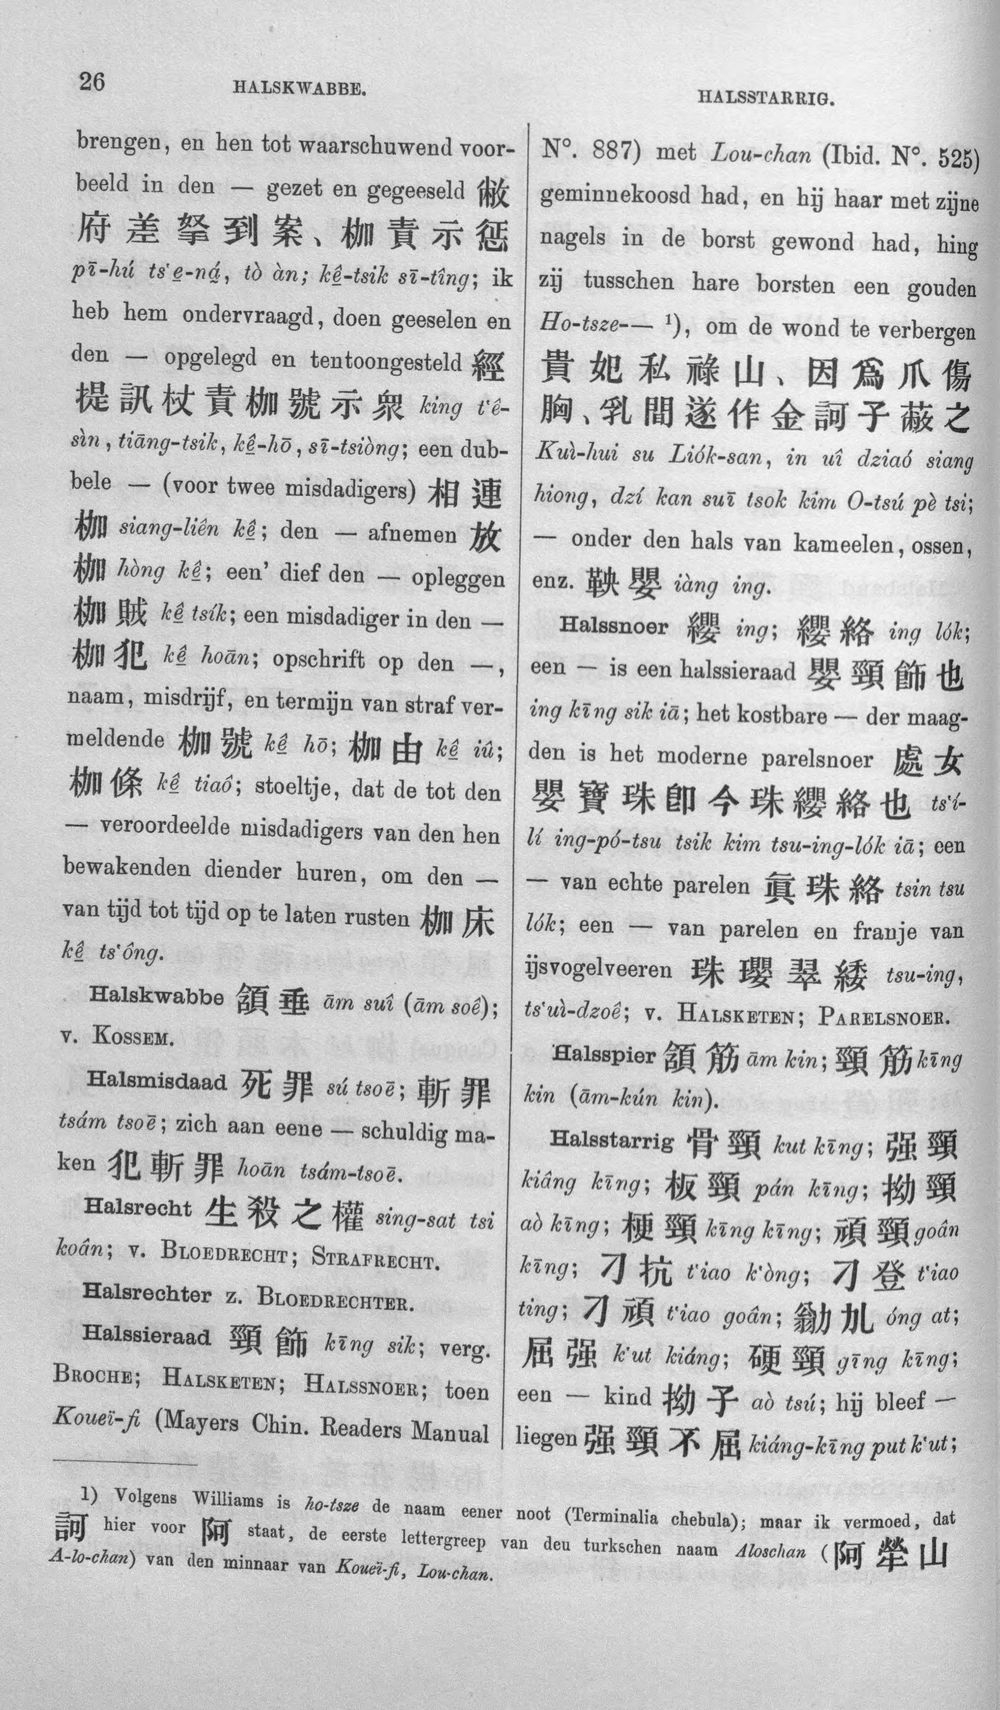 26
HALSKWABBE.
HALSSTARRIG.
brengen, en hen tot waarschuwend voor-
beeld in den — gezet en gegeeseld 敝
府差拏到案、枷責示懲
pī-hú ts‘e̱-ná̱, tò àn; kê̱-tsik sī-tîng; ik
heb hem ondervraagd, doen geeselen en
den — opgelegd en tentoongesteld 經
提訊杖責枷號示衆 king t‘ê-
sìn, tiāng-tsik, kê̱-hō, sī-tsiòng; een dub-
bele — (voor twee misdadigers) 相連
枷 siang-liên kê̱; den — afnemen 放
枷 hòng kê̱; een’ dief den — opleggen
枷賊 kê̱ tsík; een misdadiger in den —
枷犯 kê̱ hoān; opschrift op den —,
naam, misdrijf, en termijn van straf ver-
meldende 枷號 kê̱ hō; 枷由 kê̱ iû;
枷條 kê̱ tiaô; stoeltje, dat de tot den
— veroordeelde misdadigers van den hen
bewakenden diender huren, om den —
van tijd tot tijd op te laten rusten 枷床
kê̱ ts‘ông.
Halskwabbe 頷垂 ām suî (ām soê);
v. KOSSEM.
Halsmisdaad 死罪 sú tsoē; 斬罪
tsám tsoē; zich aan eene — schuldig ma-
ken 犯斬罪 hoān tsám-tsoē.
Halsrecht 生殺之權 sing-sat tsi
koân; v. BLOEDRECHT; STRAFRECHT.
Halsrechter z. BLOEDRECHTER.
Halssieraad 頸飾 kīng sik; verg.
BROCHE; HALSKETEN; HALSSNOER; toen
Koueï-fi (Mayers Chin. Readers Manual
N°. 887) met Lou-chan (Ibid. N°. 525)
geminnekoosd had, en hij haar met zijne
nagels in de borst gewond had, hing
zij tusschen hare borsten een gouden
Ho-tsze-— ¹), om de wond te verbergen
貴妃私祿山、因爲爪傷
胸、乳間遂作金訶子蔽之
Kuì-hui su Liók-san, in uî dziaó siang
hiong, dzí kan suī tsok kim O-tsú pè tsi;
— onder den hals van kameelen, ossen,
enz. 鞅嬰 iàng ing.
Halssnoer 纓 ing; 纓絡 ing lók;
een — is een halssieraad 嬰頸飾也
ing kīng sik iā; het kostbare — der maag-
den is het moderne parelsnoer 處女
嬰寶珠卽今珠纓絡也 ts‘í-
lí ing-pó-tsu tsik kim tsu-ing-lók iā; een
— van echte parelen 眞珠絡 tsin tsu
lók; een — van parelen en franje van
ijsvogelveeren 珠瓔翠緌 tsu-ing,
ts‘uì-dzoê; v. HALSKETEN; PARELSNOER.
Halsspier 頷筋 ām kin; 頸筋 kīng
kin (ām-kún kin).
Halsstarrig 骨頸 kut kīng; 强頸
kiâng kīng; 板頸 pán kīng; 拗頸
aò kīng; 梗頸 kīng kīng; 頑頸 goân
kīng; 刁抗 t‘iao k‘òng; 刁登 t‘iao
ting; 刁頑 t‘iao goân; óng at;
屈强 k‘ut kiáng; 硬頸 gīng kīng;
een — kind 拗子 aò tsú; hij bleef —
liegen 强頸不屈 kiáng-kīng put k‘ut;
1) Volgens Williams is ho-tsze de naam eener noot (Terminalia chebula); maar ik vermoed, dat
訶 hier voor 阿 staat, de eerste lettergreep van deu turkschen naam Aloschan (阿犖山
A-lo-chan) van den minnaar van Koueï-fi, Lou-chan.